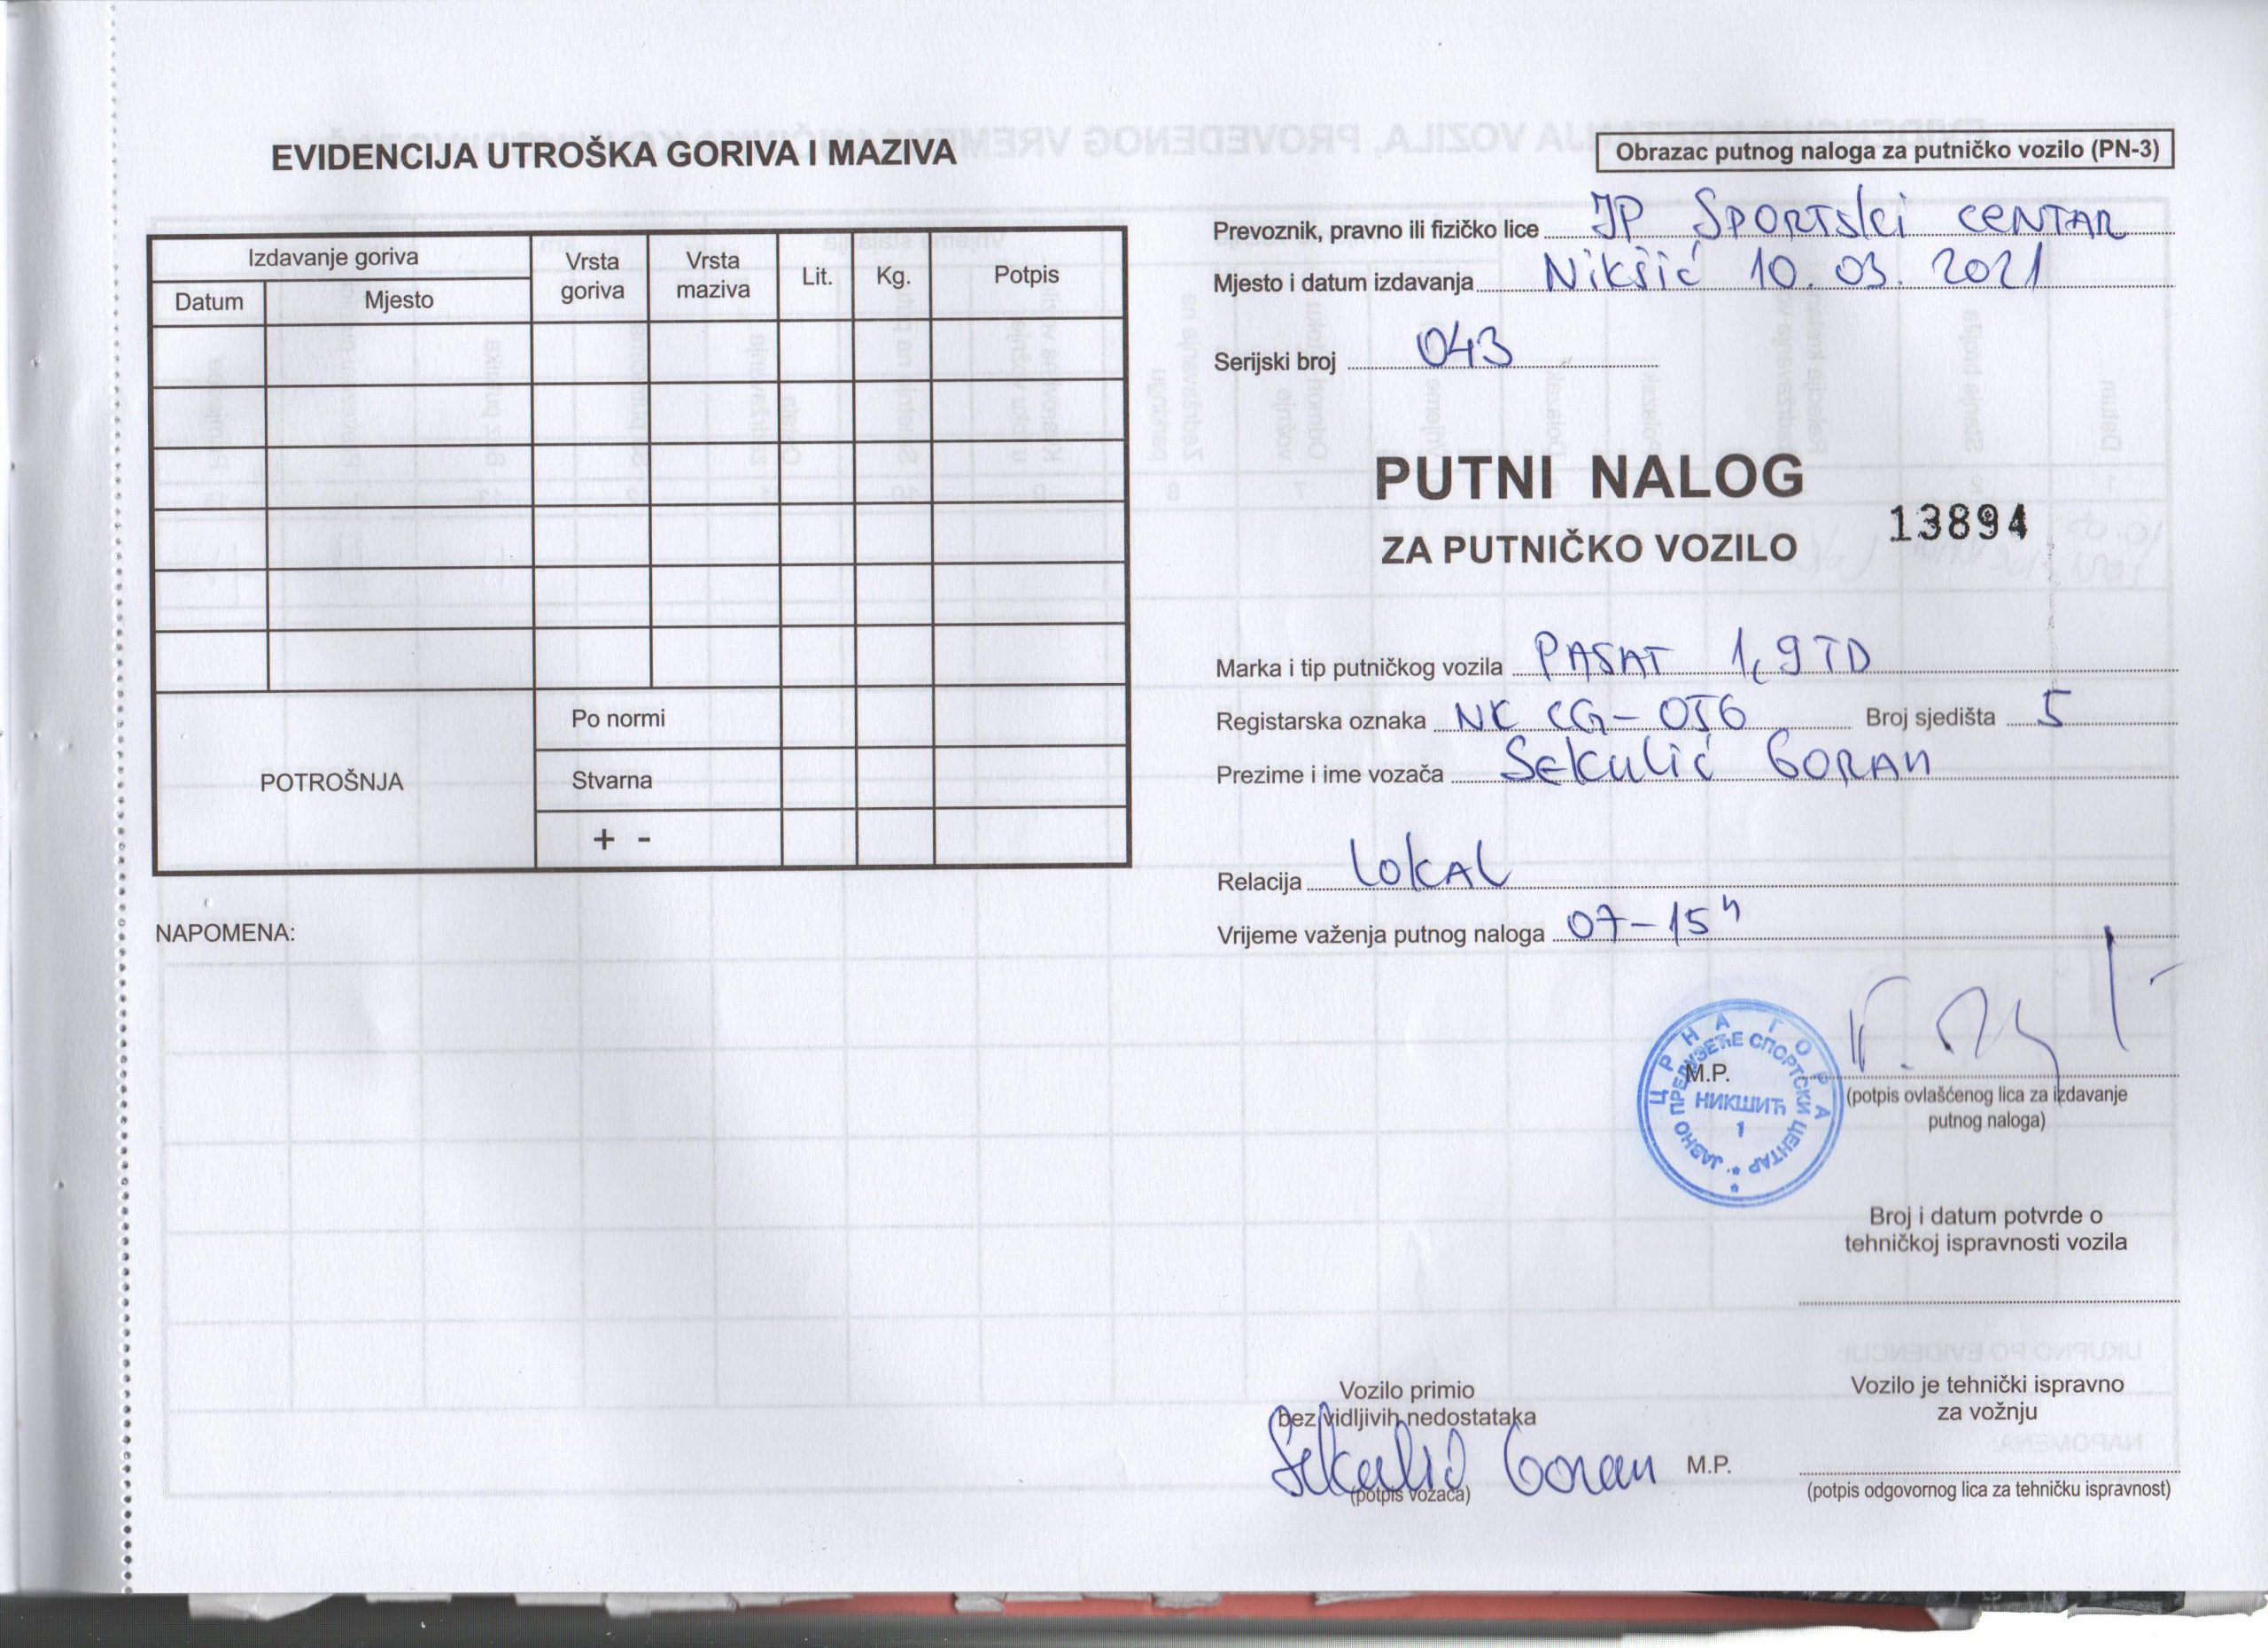 EVIDENCIJA UTROŠKA GORIVA I MAZIVA
Izdavanje goriva
Datum
Mjesto
Vrsta goriva
Vrsta maziva
Lit.
Kg.
Potpis
POTROŠNJA
Po normi
Stvarna
+ -
NAPOMENA:
Obrazac putnog naloga za putničko vozilo (PN-3)
Prevoznik, pravno ili fizičko lice JP SPORTSKI CENTAR
Mjesto i datum izdavanja Nikšić 10. 03. 2021
Serijski broj 043
PUTNI NALOG
ZA PUTNIČKO VOZILO
13894
Marka i tip putničkog vozila PASAT 1,9 TD
Registarska oznaka NK CG-056 Broj sjedišta 5
Prezime i ime vozača Sekulić GORAN
Relacija LOKAL
Vrijeme važenja putnog naloga 07-15 h
ЦРНА ГОРА
ЈАВНО ПРЕДУЗЕЋЕ СПОРТСКИ ЦЕНТАР
НИКШИЋ
1
M.P.
(potpis ovlašćenog lica za izdavanje
putnog naloga)
Broj i datum potvrde o
tehničkoj ispravnosti vozila
Vozilo primio
bez vidljivih nedostataka
Sekulić Goran
(potpis vozača)
M.P.
Vozilo je tehnički ispravno
za vožnju
(potpis odgovornog lica za tehničku ispravnost)